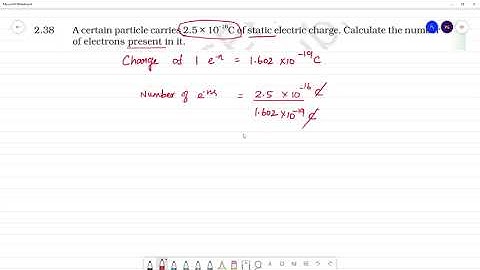 2.38 A certain particle carries 2.5 × 10⁻¹⁶C of static electric charge. Calculate the number
of electrons present in it.
Charge of 1 e⁻n = 1.602 × 10⁻¹⁹ C
Number of e⁻ns = 2.5 × 10⁻¹⁶ C
1.602 × 10⁻¹⁹ C